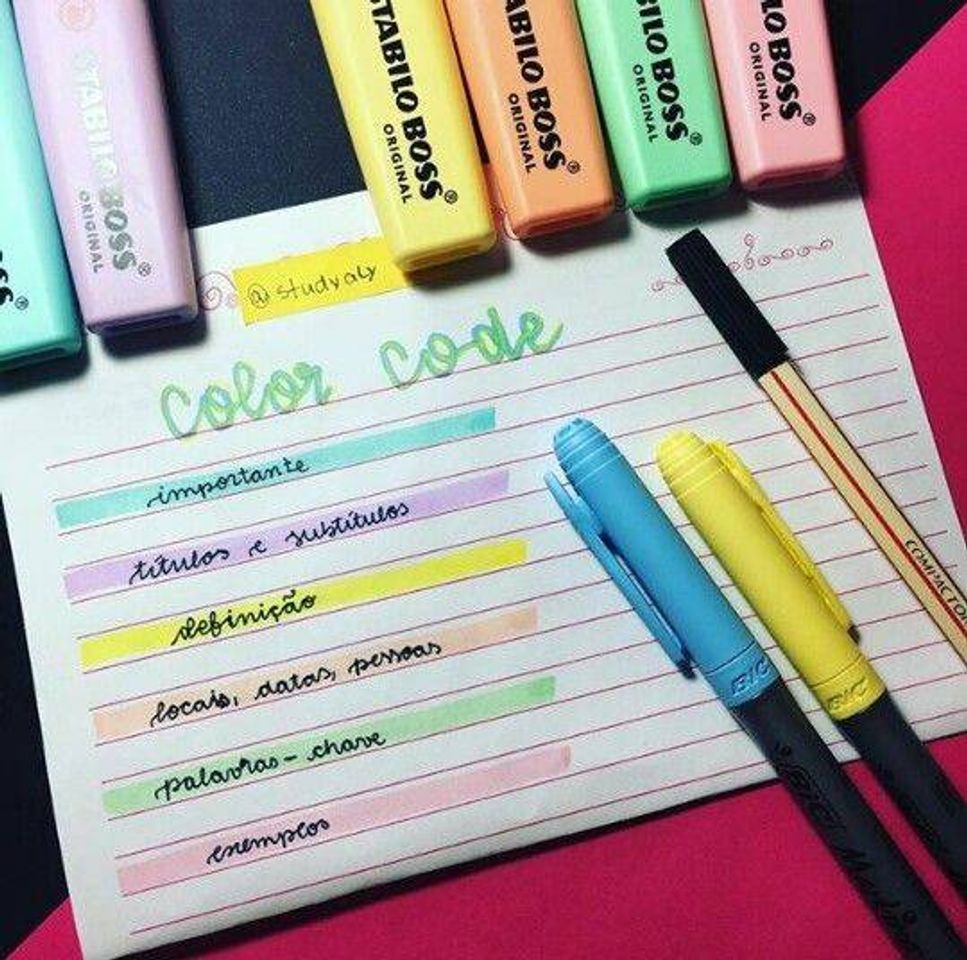 STABILO BOSS®
ORIGINAL
STABILO BOSS®
ORIGINAL
ABILO BOSS®
ORIGINAL
BILO BOSS®
ORIGINAL
LO BOSS®
ORIGINAL
@studyaly
color code
importante
títulos e subtítulos
definição
locais, datas, pessoas
palavras-chave
exemplos
COMPACTOR
BIC
BIC
BIC